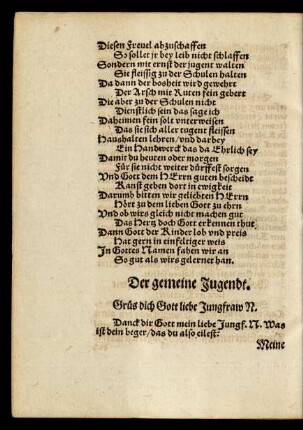 Diesen Freuel abzuschaffen
So sollet jr bey leib nicht schlaffen
Sondern mit ernst der jugent walten
Sie fleissig zu der Schulen halten
Da dann der bosheit wird gewehrt
Der Arsch mit Ruten fein gebert
Die aber zu der Schulen nicht
Dienstlich sein das sage ich
Daheimen fein solt vnterweisen
Das sie sich aller tugent fleissen
Haushalten lehren/vnd darbey
Ein Handwerck das da Ehrlich sey
Damit du heuten oder morgen
Für sie nicht weiter dürffest sorgen
Vnd Gott dem HErrn guten bescheidt
Kanst geben dort in ewigkeit
Darumb bitten wir geliebten HErrn
Hört zu dem lieben Gott zu ehrn
Vnd ob wirs gleich nicht machen gut
Das Hertz doch Gott erkennen thut
Dann Gott der Kinder lob vnd preis
Hat gern in einfeltiger weis
In Gottes Namen fahen wir an
So gut als wirs gelernet han.
Der gemeine Jugendt.
Grüs dich Gott liebe Jungfraw N.
Danck dir Gott mein liebe Jungf. N. Was
ist dein beger/das du also eilest?
Meine